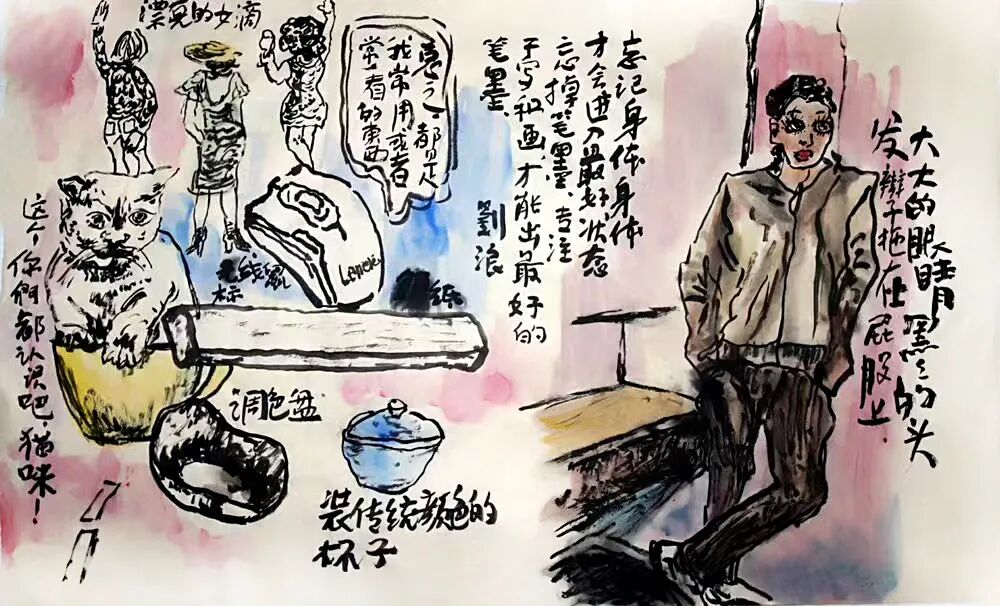 漂亮的女滴
总之，都是人
我常用或者
常看的东西
忘记身体身体
才会进入最好状态
忘掉笔墨、专注
于写和画，才能出最好的
笔墨、
劉浪
大大的眼睛黑黑的头
发辫子拖在屁股上．
这个你們都认识吧，猫咪！
Lenovo
无线鼠
标
纸
调色盆
装传统颜色的
杯子